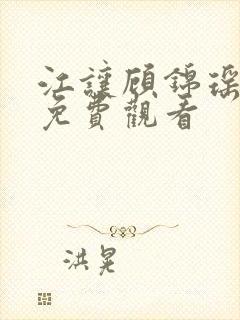 江讓顧錦瑶
免費觀看
洪晃